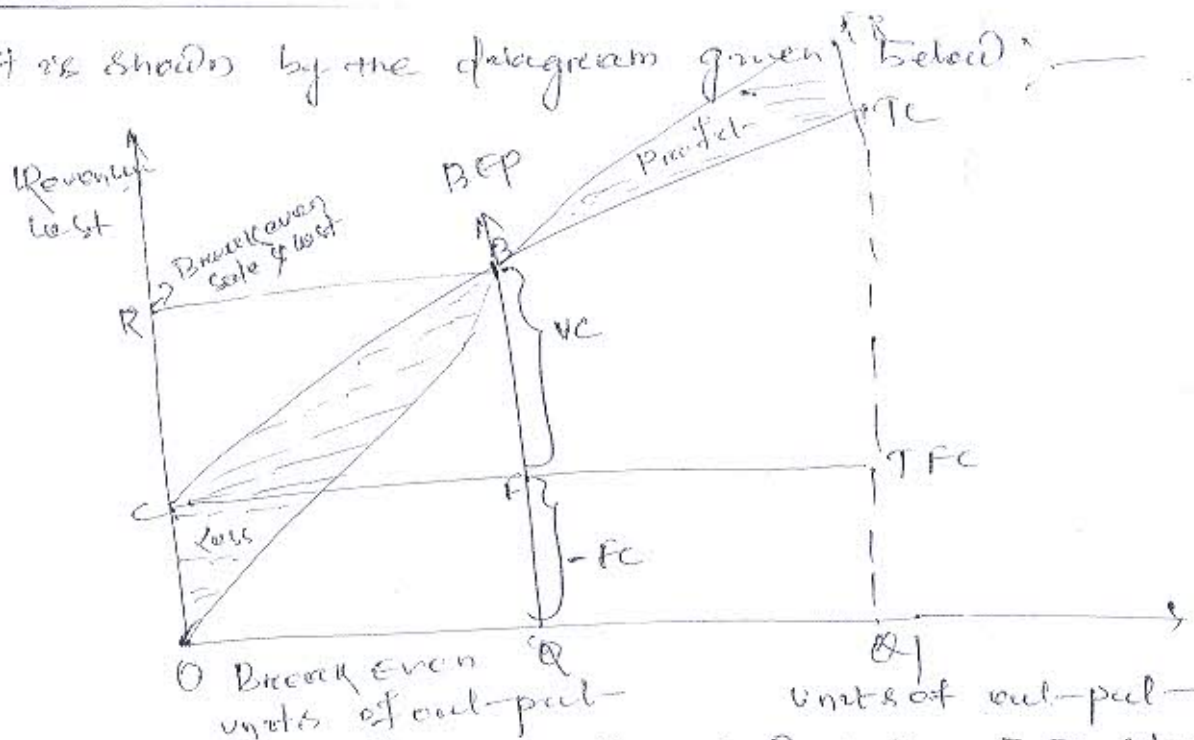 it is shown by the diagram given below :—
TR
TC
Profit
BEP
Revenue
Cost
Breakeven
sale & cost
B
R
VC
C
F
TFC
Loss
FC
O Break Even Q Q1
units of out-put units of out-put